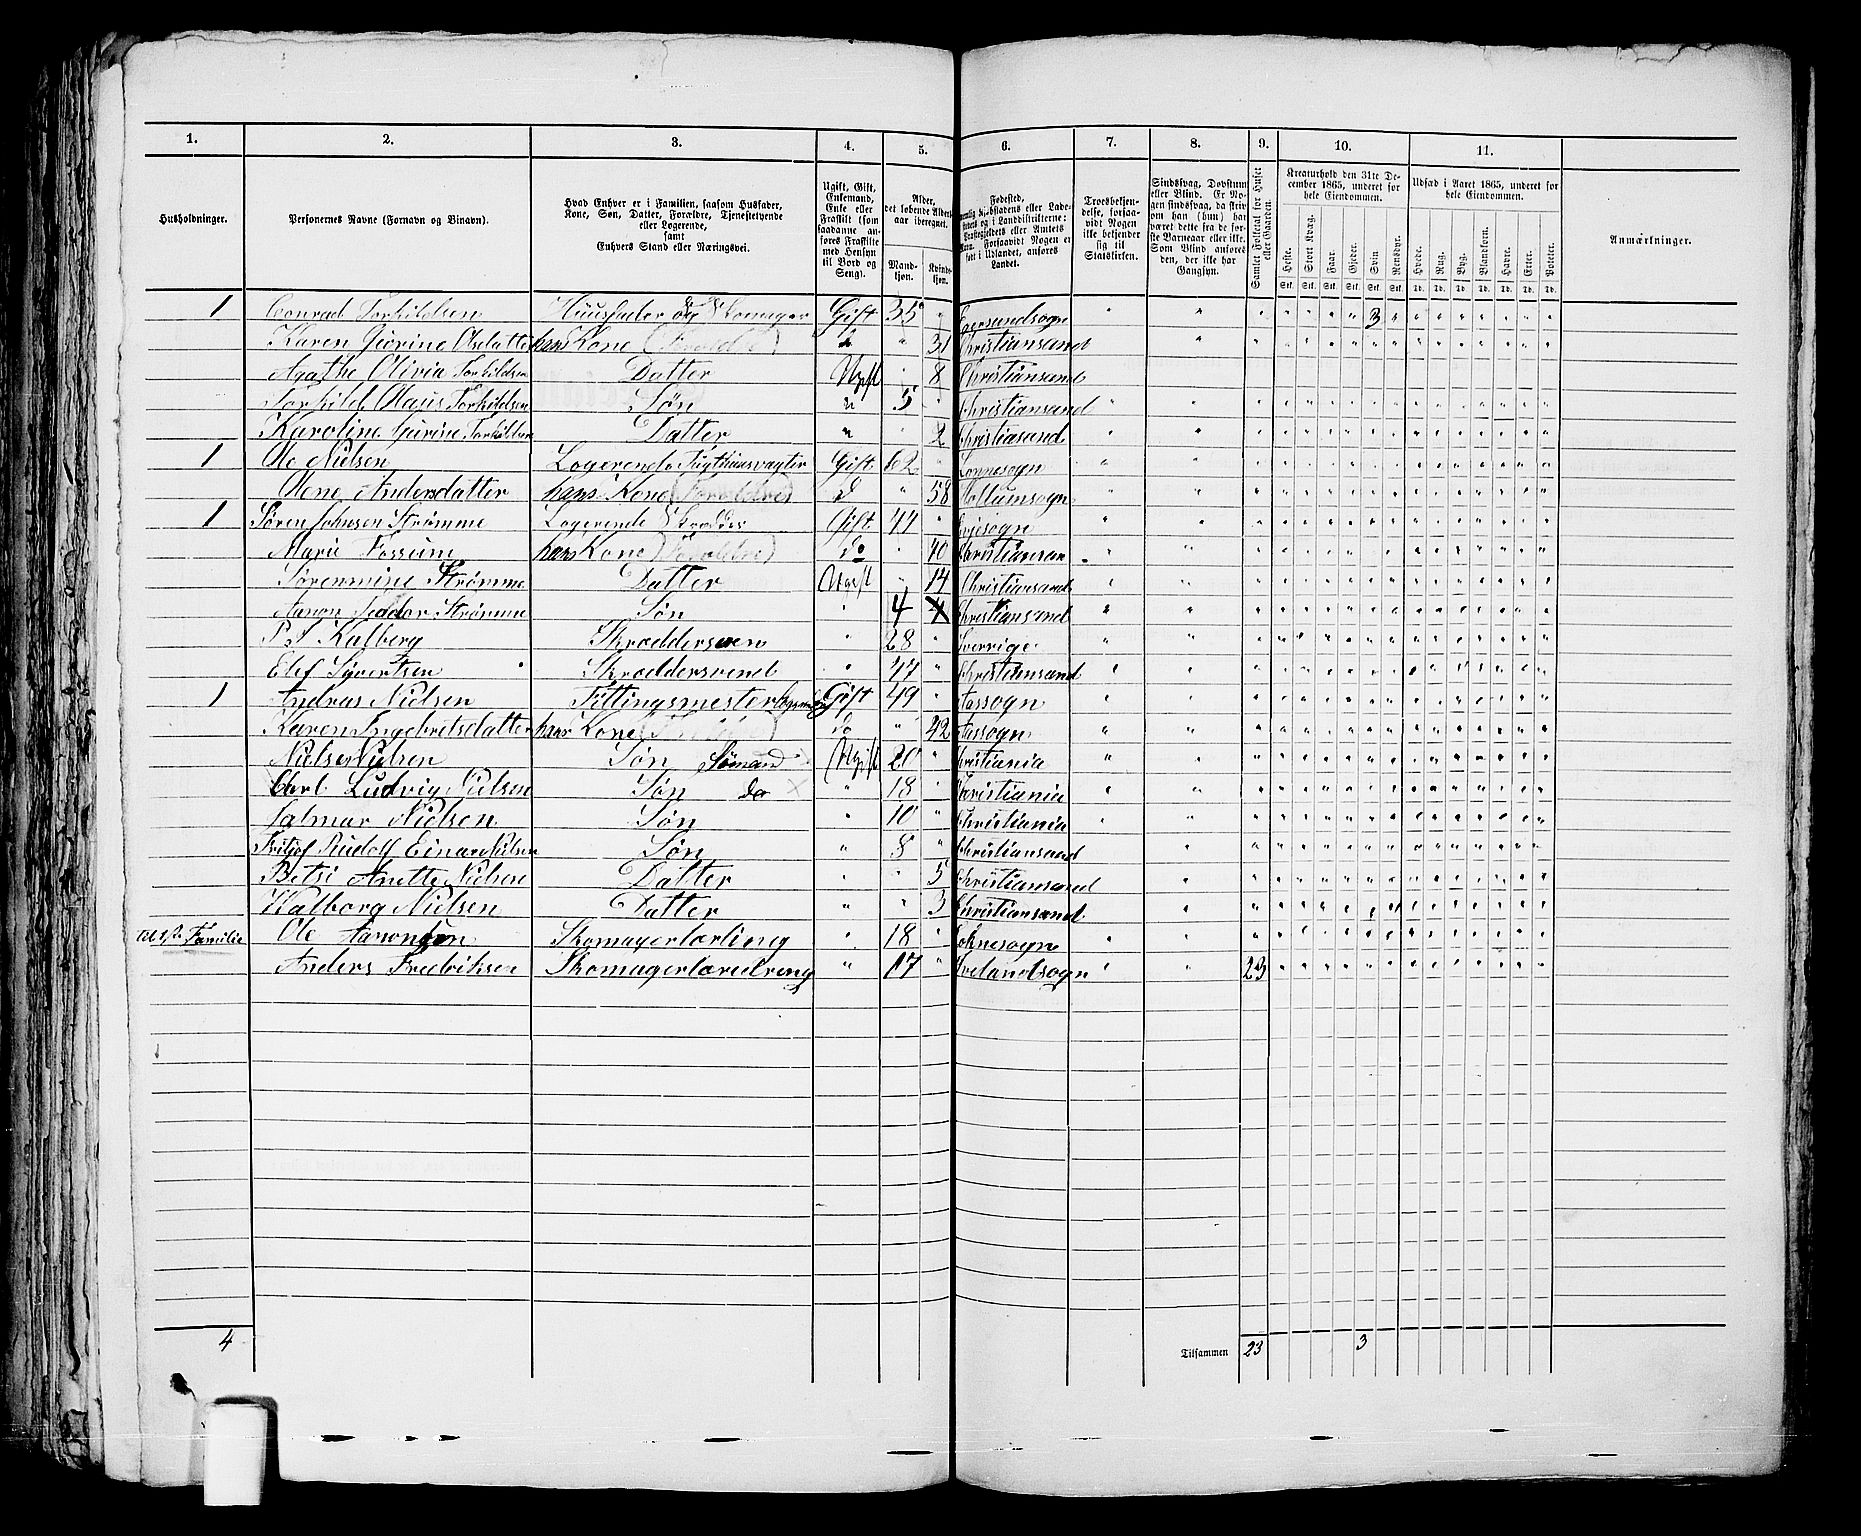 1. 2. 3. 4. 5. 6. 7. 8. 9. 10. 11.
Husholdninger.
Personernes Navne (Fornavn og Binavn).
Hvad Enhver er i Familien, saasom Husfader, Kone, Søn, Datter, Forældre, Tjenestetyende eller Logerende, samt Enhvers Stand eller Næringsvei.
Ugift, Gift, Enkemand, Enke eller Fraskilt (som saadanne anføres Fraskilte med Hensyn til Bord og Seng).
Alder, det løbende Alders aar iberegnet.
Mandkjøn. Kvindekjøn.
Fødested,
Troesbekjendelse, forsaavidt Nogen ikke bekjender sig til Statskirken.
Sindssvag, Døvstum eller Blind. Er Nogen sindssvag, da skrives om han (hun) har været dette fra de første Barneaar eller ikke. Som Blind anføres den, der ikke har Gangsyn.
Samlet Folketal for Huset eller Gaarden.
Kreaturhold den 31te December 1865, underet for hele Eiendommen.
Heste. Stort Kvæg. Faar. Gjeder. Svin Rensdyr.
Udsæd i Aaret 1865, underet for hele Eiendommen.
Hvede. Rug. Byg. Blandkorn. Havre. Erter. Poteter.
Anmærkninger.
1 Conrad Torkildsen Huusfader og Skomager Gift 35 " Egersundsogn 3
Karen Giorine Olsdatter hans Kone (Foreldre) " 31 Christiansand
Agathe Olivia Torkildsen Datter Ugift " 8 Christiansand
Torkild Olaus Torkildsen Søn " 5 " Christiansand
Karoline Gurine Torkildsen Datter " " 2 Christiansand
1 Ole Nielsen Logerende Tugthuusvagter Gift 62 "
Olene Andersdatter hans Kone (Foreldre) D " 58 Hollumsogn
1 Søren Johnsen Strømme Logerende Skrædder Gift 44 "
Marie Fossum hans Kone (Foreldre) Do " 40 Christiansan
Sørenmine Strømme Datter Ugift " 14 Christiansand
Aanon Teodor Strømme Søn " 4 Christiansand
P. S. Kalberg Skræddersven " 28 " Sverrige
Elef Syvertsen Skræddersvend " 47 " Christiansand
1 Andras Nielsen Fittingsmester Gift 49 " Aassogn
Karen Ingebretsdatter hans Kone do " 42 Aassogn
Niels Nielsen Søn Sømand Ugift 20 " Christiania
Carl Ludvig Nielsen Søn do " 18 " Christiania
Jalmar Nielsen Søn " 10 " Christiania
Fritjof Rudolf Einar Nielsen Søn " 8 " Christiansand
Betsi Anette Nielsen Datter " " 5 Christiansand
Walborg Nielsen Datter " " 3 Christiansand
til 1ste Familie Ole Aanonsen Skomagerlærling " 18 "
Anders Fredriksen Skomagerlæredreng " 17 " 23
4 Tilsammen 23 3